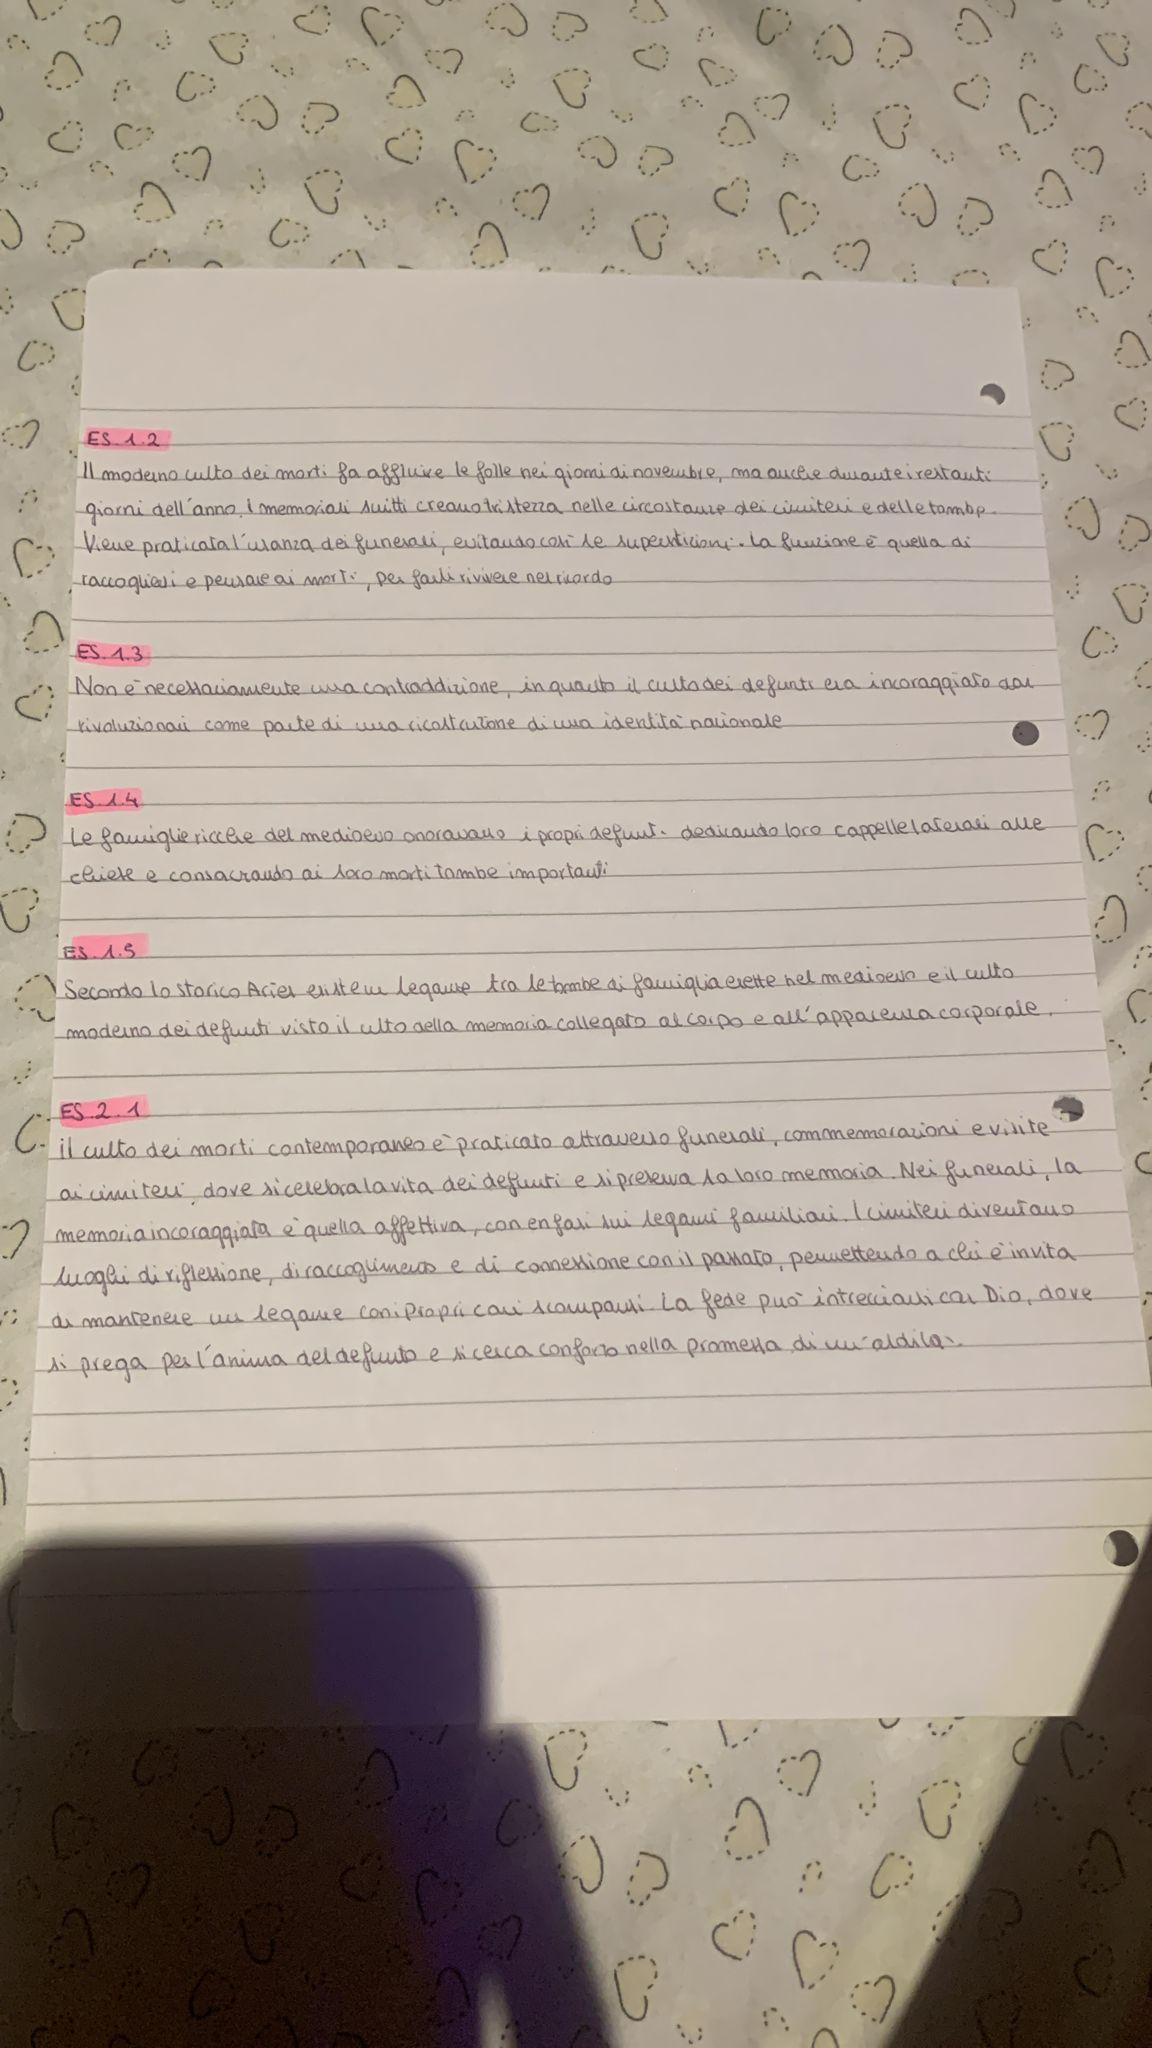 ES. 1.2
Il moderno culto dei morti fa affluire le folle nei giorni di novembre, ma anche durante i restanti
giorni dell'anno. I memoriali scritti creano tristezza nelle circostanze dei cimiteri e delle tombe.
Viene praticata l'usanza dei funerali, evitando così le superstizioni. La funzione è quella di
raccogliersi e pensare ai morti, per farli rivivere nel ricordo
ES. 1.3
Non è necessariamente una contraddizione, in quanto il culto dei defunti era incoraggiato dai
rivoluzionari come parte di una ricostruzione di una identità nazionale
ES. 1.4
Le famiglie ricche del medioevo onoravano i propri defunti dedicando loro cappelle laterali alle
chiese e consacrando ai loro morti tombe importanti
ES. 1.5
Secondo lo storico Aries esiste un legame tra le tombe di famiglia erette nel medioevo e il culto
moderno dei defunti visto il culto della memoria collegato al corpo e all'apparenza corporale.
ES. 2.1
il culto dei morti contemporaneo è praticato attraverso funerali, commemorazioni e visite
ai cimiteri, dove si celebra la vita dei defunti e si preserva la loro memoria. Nei funerali, la
memoria incoraggiata è quella affettiva, con enfasi sui legami familiari. I cimiteri diventano
luoghi di riflessione, di raccoglimento e di connessione con il passato, permettendo a chi è invita
di mantenere un legame con i propri cari scomparsi. La fede può intrecciarsi con Dio, dove
si prega per l'anima del defunto e si cerca conforto nella promessa di un'aldilà.